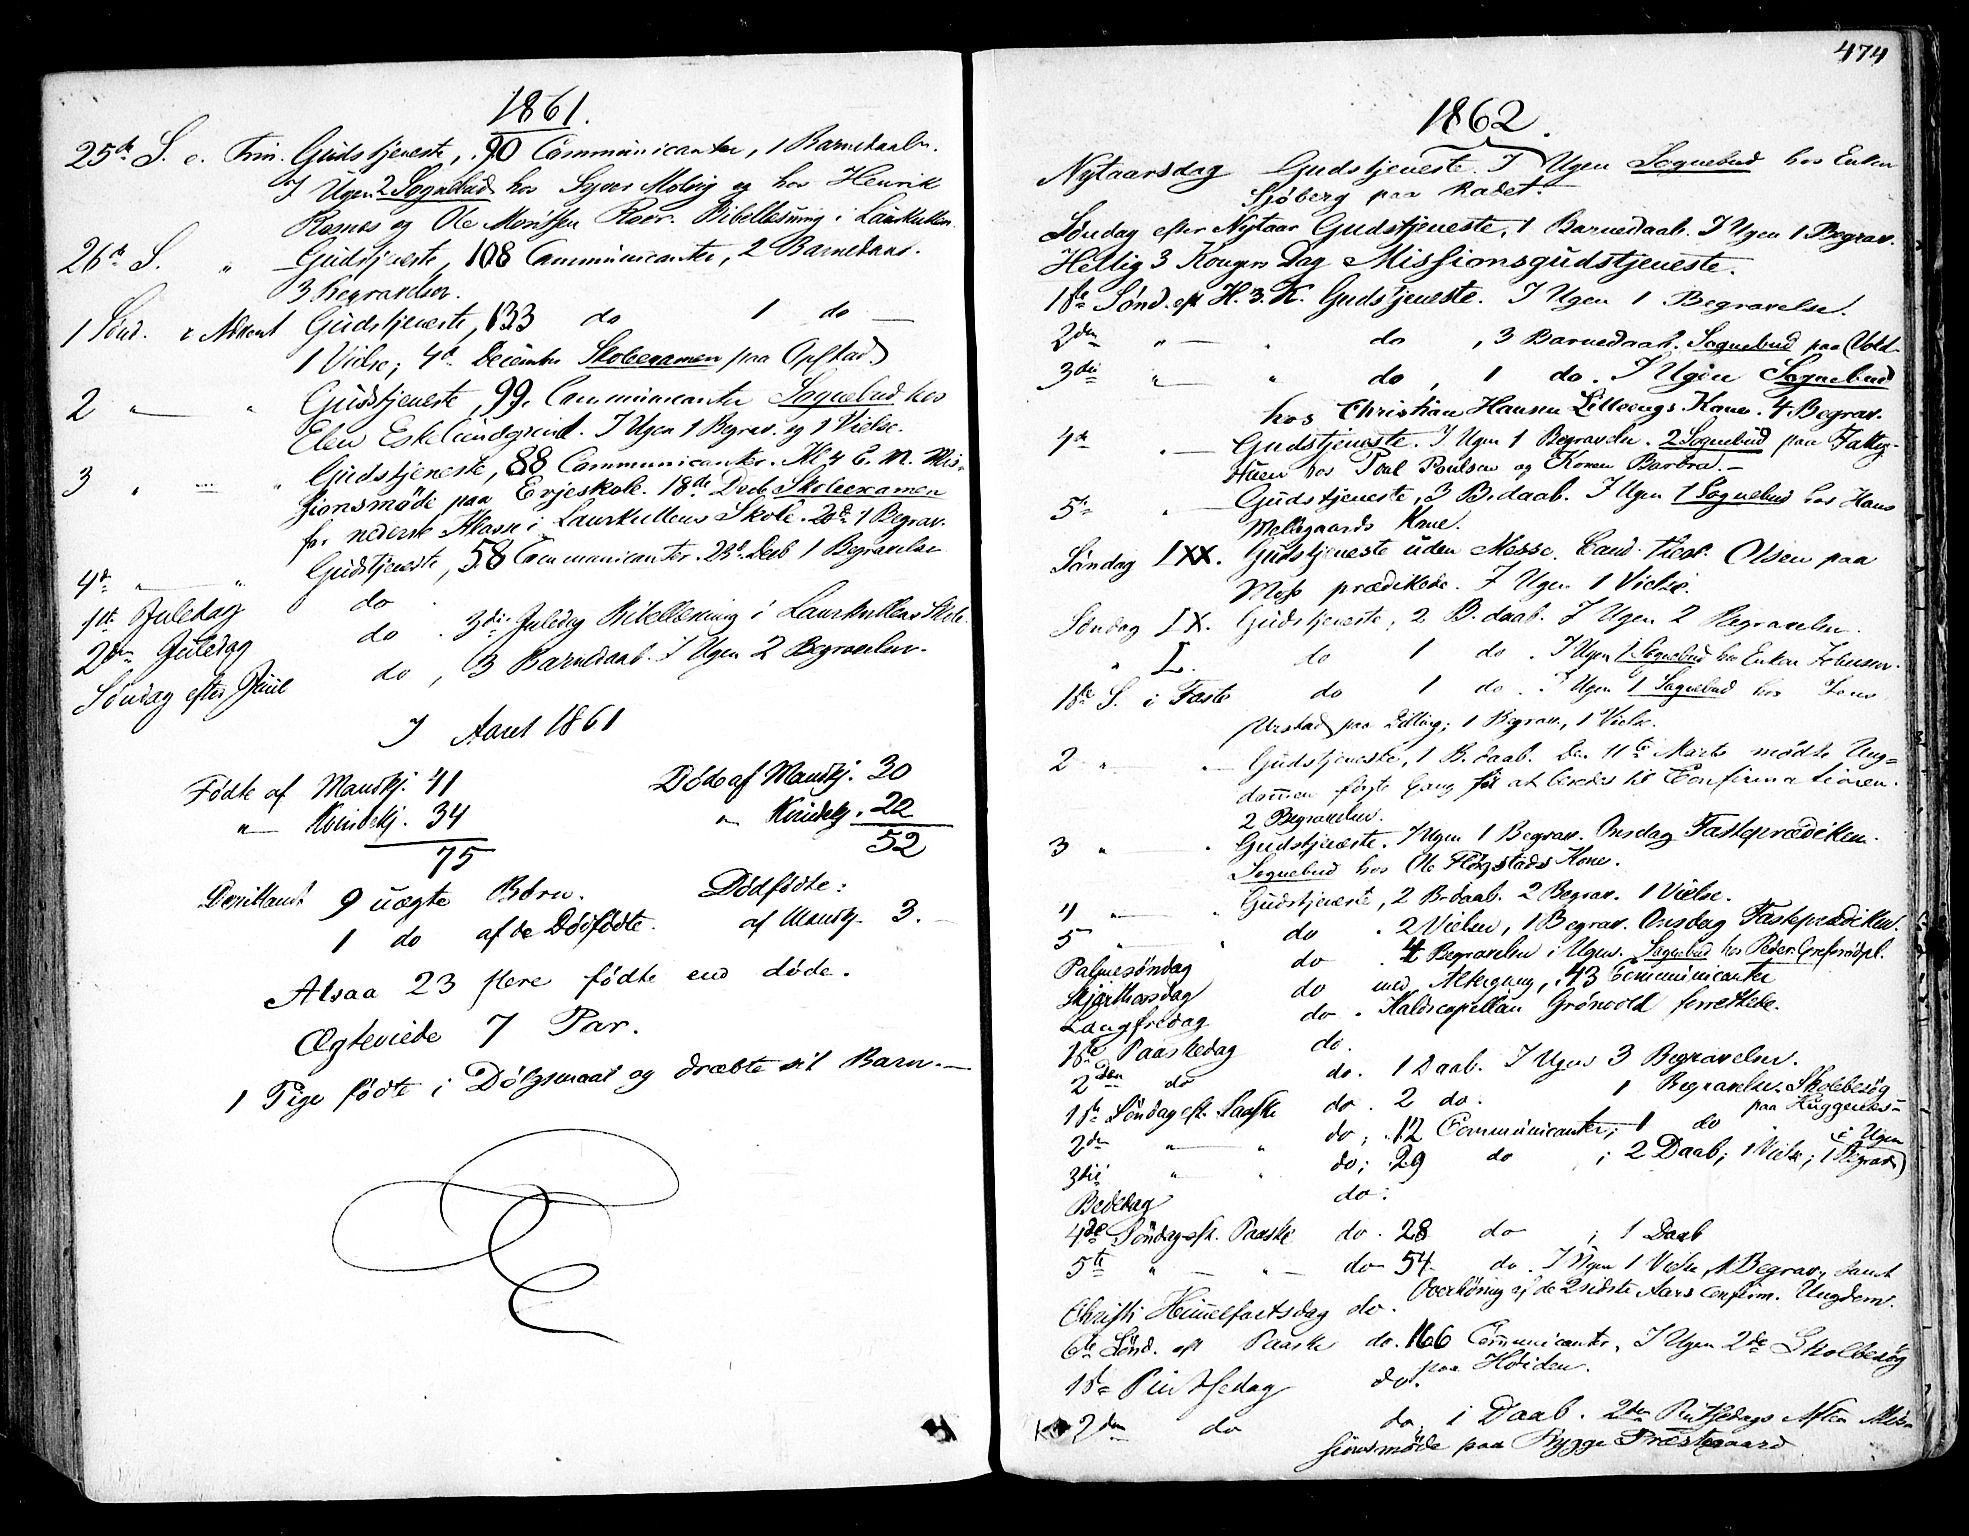 1861.
25de S. e. Trin. Gudstjeneste, 90 Communicanter, 1 Barnedaab.
I Ugen 2 Sognebud hos Syver Molvig og hos Henrik
Rosnæs og Ole Moritsen Roer. Bibellæsning i Laurkullen.
26de S. " Gudstjeneste, 108 Communicanter, 2 Barnedaab.
3 Begravelser.
1 Sönd. i Advent Gudstjeneste, 133 do 1 do —
1 Vielse; 4de December Skoleexamen paa Opstad.
2 " — " Gudstjeneste, 99 Communicanter Sognebud hos
Elen Eskelundgrind. I Ugen 1 Begrav. og 1 Vielse.
3 " — " Gudstjeneste, 88 Communicanter. Kl 4 E. M. Mis-
sionsmöde paa Evjeskole. 18de Decb. Skoleexamen
for nederste Klasse i Laurkullens Skole. 20de 1 Begrav.
4de " — " Gudstjeneste, 58 Communicanter. 23de Decb 1 Begravelse
1ste Juledag do .
2den Juledag do . 3die Juledag Bibellæsning i Laurkullens Skole.
Söndag efter Juul do , 3 Barnedaab. I Ugen 2 Begravelser.
I Aaret 1861
Födte af Mandkj. 41 Döde af Mandkj. 30
" — Kvindekj. 34 " — Kvindekj. 22
75 52
Deriblandt 9 uægte Börn. Dödfödte:
1 do af de Dödfödte. af Mandkj. 3. —
Altsaa 23 flere födte end döde.
Ægteviede 7 Par.
1 Pige födte i Dölgsmaal og dræbte sit Barn. —
474
1862.
Nytaarsdag Gudstjeneste. I Ugen Sognebud hos Enken
Sjöberg paa Radet. —
Söndag efter Nytaar Gudstjeneste, 1 Barnedaab. I Ugen 1 Begrav.
Hellig 3 Kongers Dag Missionsgudstjeneste.
1ste Sönd. eft H. 3. K. Gudstjeneste. I Ugen 1 Begravelse.
2den " — " do , 3 Barnedaab. Sognebud paa Vold-
3die " — " do , 1 do. I Ugen Sognebud
hos Christian Hansen Lilleengs Kone. 4 Begrav.
4de " — Gudstjeneste. I Ugen 1 Begravelse. 2 Sognebud paa Fattig-
Huen hos Poul Poulsen og Konen Barbra. —
5te " — Gudstjeneste, 3 B.daab. I Ugen 1 Sognebud hos Hans
Melösgaards Kone.
Söndag LXX. Gudstjeneste uden Messe. Cand. theol. Olsen paa
Moss prædikede. I Ugen 1 Vielse.
Söndag LX. Gudstjeneste, 2 B.daab. I Ugen 2 Begravelser.
" L. do 1 do . I Ugen 1 Sognebud hos Enken Johnsen.
1ste S. i Faste do 1 do . I Ugen 1 Sognebud hos Jens
Urstad paa Dilling; 1 Begrav., 1 Vielse.
2 " — " Gudstjeneste, 1 B.daab. Den 11te Marts mödte Ung-
dommen förste Gang for at beredes til Confirmationen.
2 Begravelser.
3 " — " Gudstjeneste. I Ugen 1 Begrav. Onsdag Fasteprædiken.
Sognebud hos Ole Flögstads Kone.
4 " — " Gudstjeneste, 2 B.daab. 2 Begrav. 1 Vielse.
5 " — " do . 2 Vielser, 1 Begrav. Onsdag Fasteprædiken.
Palmesöndag do . 4 Begravelser i Ugen. Sognebud hos Peder
Skjærthorsdag do med Altergang, 43 Communicanter
Langfredag do . Kaldscapellan Grönvold forrettede.
1ste Paaskedag do.
2den do do. 1 Daab. I Ugen 3 Begravelser.
1ste Söndag eft. Paaske do . 2 do. 1 Begravelse. Skolebesög
paa Huggenes —
2den " — " do ; 12 Communicanter; 1 do i Ugen
3die " — " do ; 29 do ; 2 Daab; 1 Vielse; 1 Begrav.
Bededag do .
4de Söndag eft. Paaske do . 28 do ; 1 Daab
5te " — " — do 54 do . I Ugen 1 Vielse, 1 Begrav., samt
Overhöring af de 2 sidste Aars confirm. Ungdom.
Christi Himmelfartsdag do .
6te Sönd. eft Paaske do. 166 Communicanter. I Ugen 2de Skolbesög
paa Höiden.
1ste Pintsedag do .
2den do do . 1 Daab. 2den Pintsedags Aften Mis-
sionsmöde paa Rygge Præstegaard.